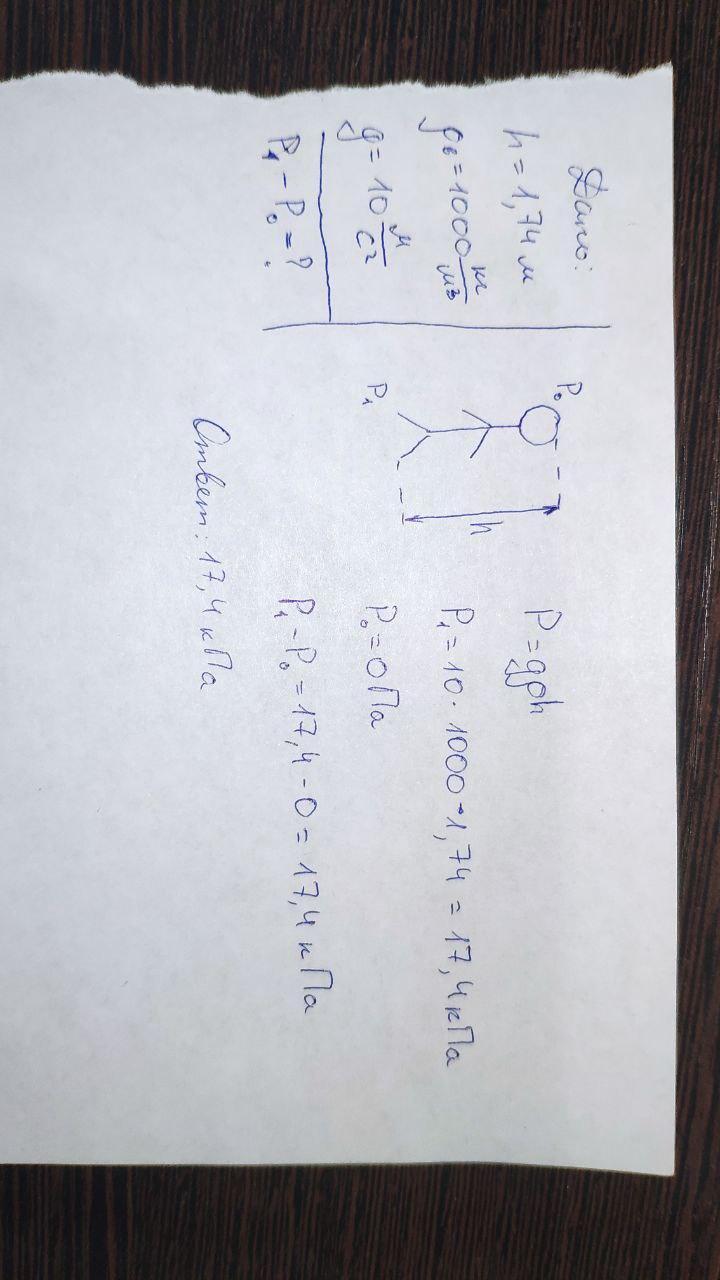 Дано:
h = 1,74 м
ρв = 1000 кг/м³
g = 10 м/с²
P₁ - P₀ = ?
P₀
h
P₁
P = gρh
P₁ = 10 · 1000 · 1,74 = 17,4 кПа
P₀ = 0 Па
P₁ - P₀ = 17,4 - 0 = 17,4 кПа
Ответ: 17,4 кПа